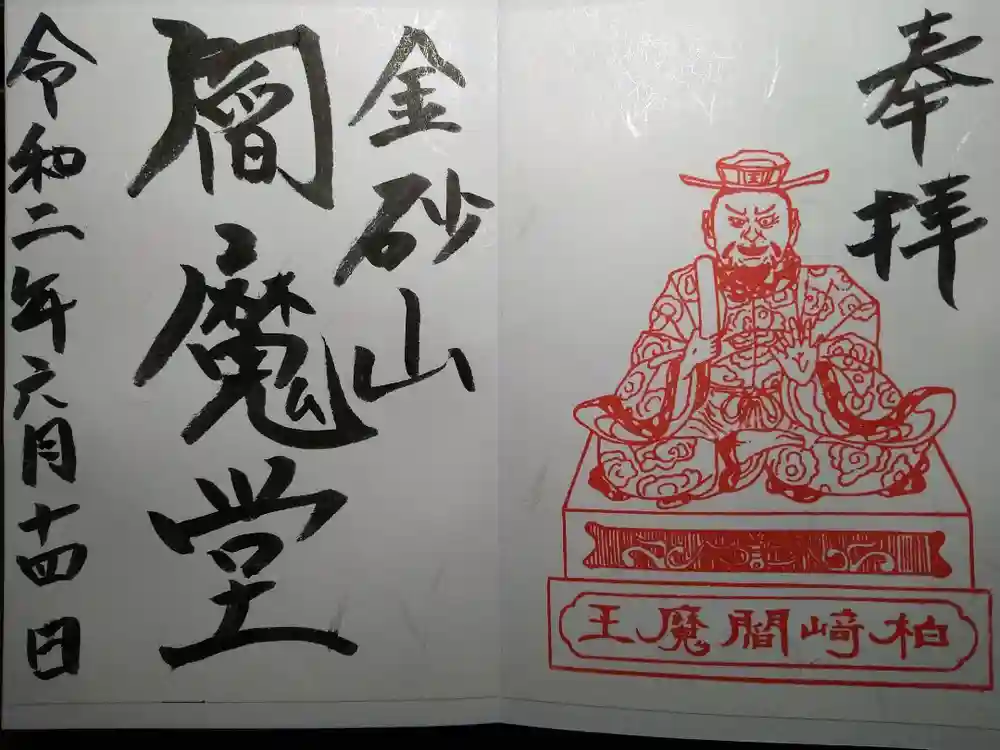 奉拝
国
柏﨑閻魔王
金砂山
閻魔堂
令和二年六月十四日